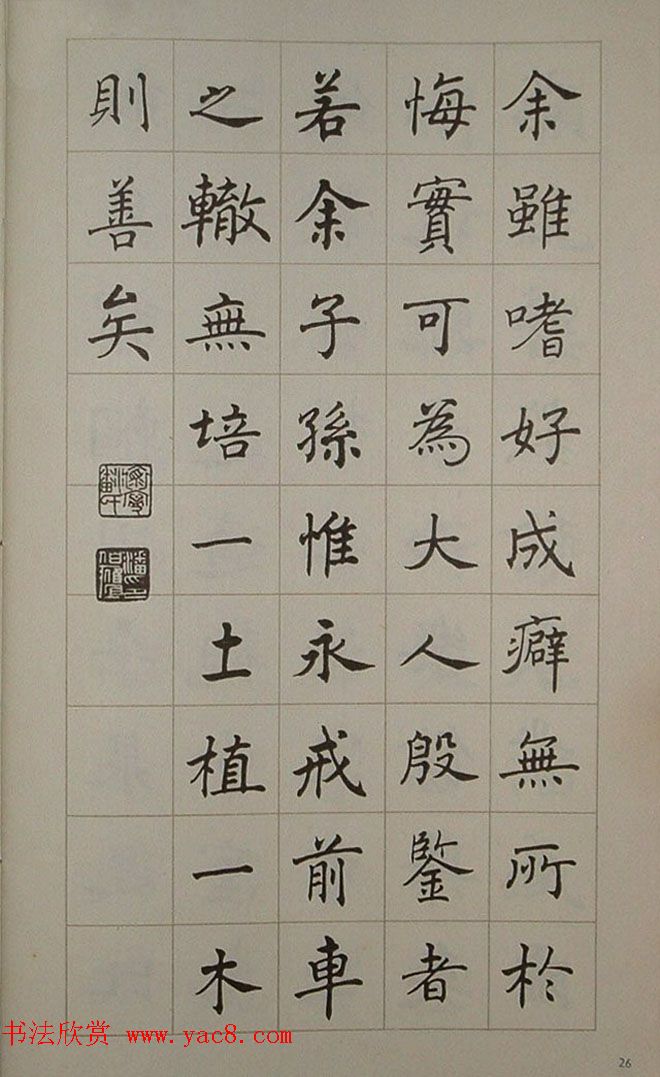 余雖嗜好成癖無所於
悔實可為大人殷鑒者
若余子孫惟永戒前車
之轍無培一土植一木
則善矣
书法欣赏 www.yac8.com
26